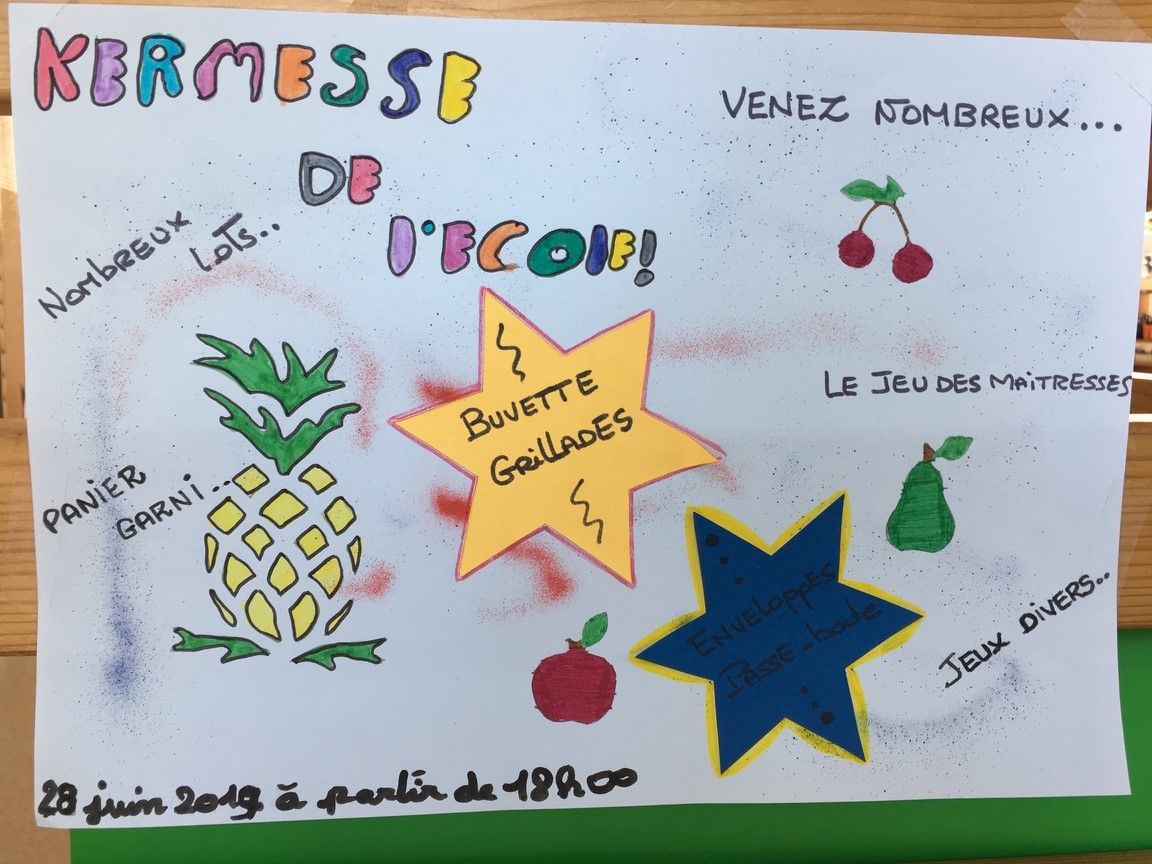 KERMESSE
DE
L'ECOLE!
VENEZ NOMBREUX...
NOMBREUX
LOTS..
BUVETTE
GRILLADES
LE JEU DES MAITRESSES
PANIER
GARNI..
ENVELOPPES
PASSE-boule
JEUX DIVERS..
28 juin 2019 à partir de 18h00